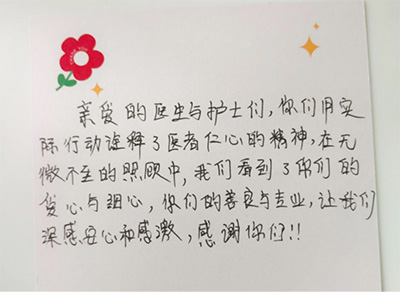 亲爱的医生与护士们，你们用实
际行动诠释了医者仁心的精神，在无
微不至的照顾中，我们看到了你们的
爱心与细心，你们的善良与专业，让我们
深感安心和感激，感谢你们!!